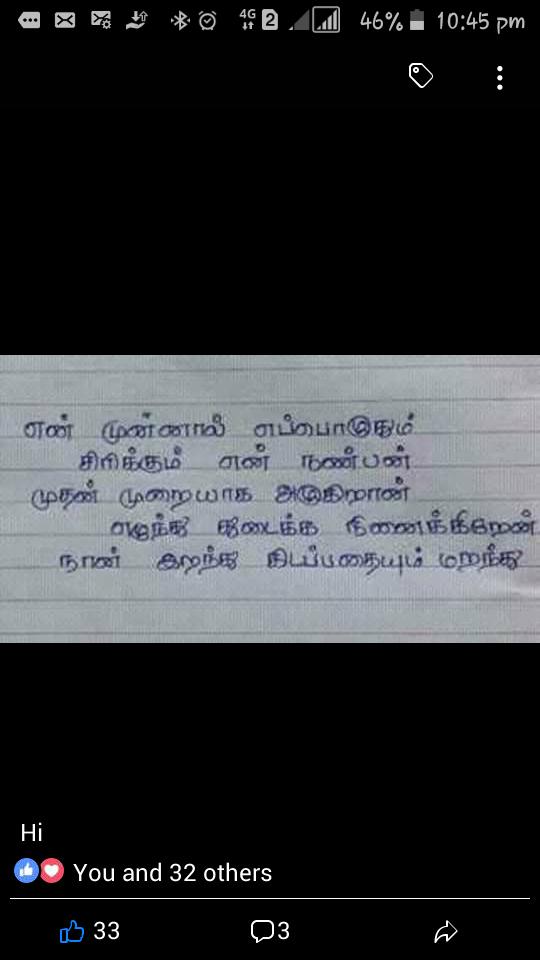 4G 2 46% 10:45 pm
என் முன்னால் எப்பொழுதும்
சிரிக்கும் என் நண்பன்
முதன் முறையாக அழுகிறான்
எழுந்து துடைக்க நினைக்கிறேன்
நான் இறந்து கிடப்பதையும் மறந்து
Hi
You and 32 others
33 3